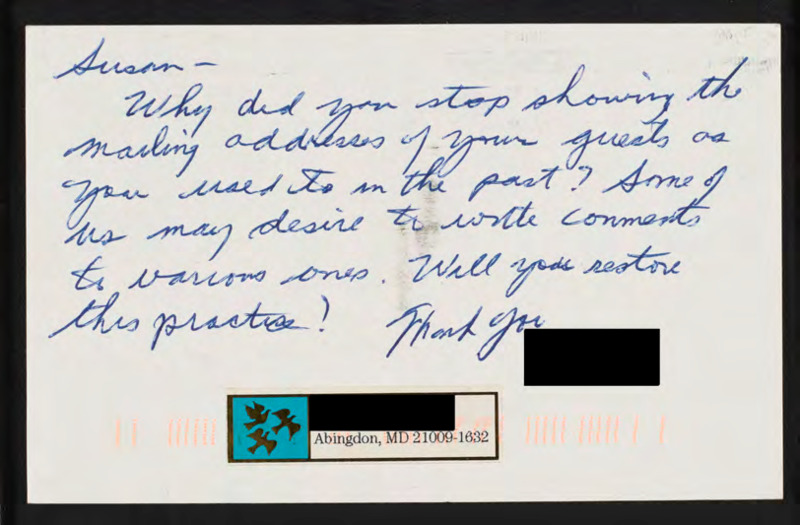 Susan —
Why did you stop showing the
mailing addresses of your guests as
you used to in the past? Some of
us may desire to write comments
to various ones. Will you restore
this practice! Thank You
Abingdon, MD 21009-1632